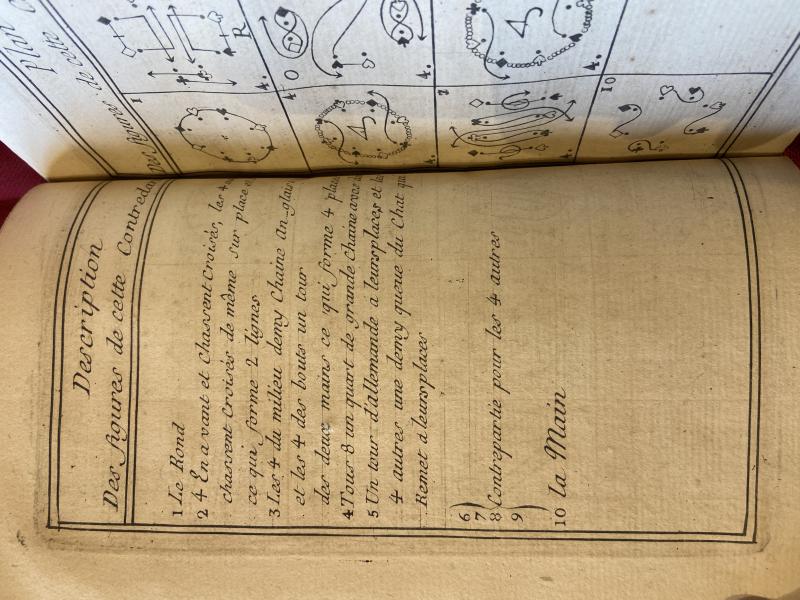 Description
Des figures de cette Contredan
1 Le Rond
2 4 En avant et Chassent Croisés, les 4
chassent Croisés de même sur place
ce qui forme 2 lignes
3 Les 4 du milieu demy Chaine An-glais
et les 4 des bouts un tour
des deux mains ce qui forme 4 plac
4 Tous 8 un quart de grande Chaine avec
5 Un tour d'allemande a leurs places, et le
4 autres une demy queue du Chat qu
Remet a leurs places
6
7
8 Contrepartie pour les 4 autres
9
10 la Main
Plan
Des figures de cette
R
4.
O
4.
4.
1
4
4.
2
4.
10